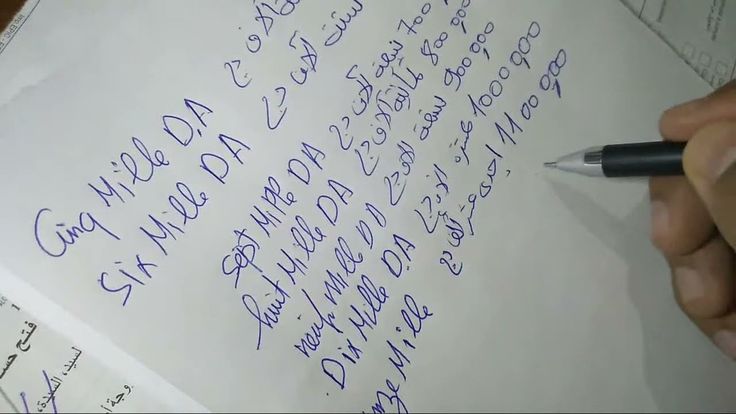 Cinq Mille DA آلاف دج
Six Mille DA ستة آلاف دج
Sept Mille DA سبعة آلاف دج 700
huit Mille DA ثمانية آلاف دج 800,000
neuf Mille DA تسعة آلاف دج 900,000
Dix Mille DA عشرة آلاف دج 1000,000
onze Mille احدى عشر ألف دج 1100,000
فتح حسا
لسيد، السيدة،